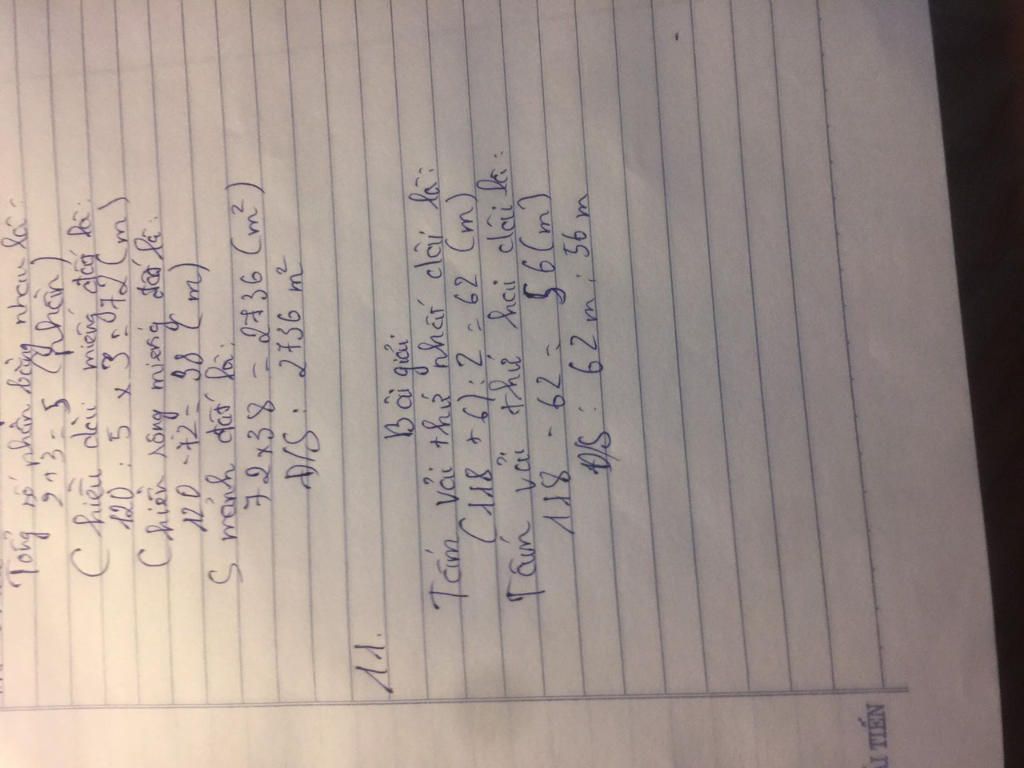 Tổng số phần bằng nhau là:
2+3=5 (phần)
Chiều dài miếng đất là:
120 : 5 x 3 = 72 (m)
Chiều rộng miếng đất là:
120 - 72 = 38 (m)
S mảnh đất là:
72 x 38 = 2736 (m²)
Đ/S : 2736 m²
11.
Bài giải
Tấm vải thứ nhất dài là:
(118 + 6) : 2 = 62 (m)
Tấm vải thứ hai dài là:
118 - 62 = 56 (m)
Đ/S : 62 m ; 56 m
ẢI TIẾN